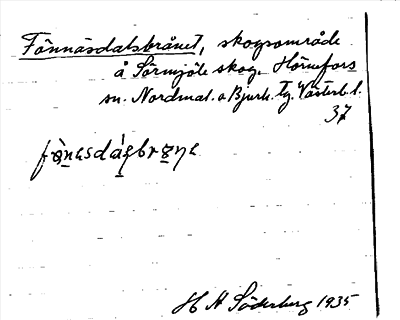 Fönnäsdalsbrånet, skogsområde
å Sörmjöle skog, Hörnefors
sn. Nordmal. o Bjurh. tg. Västerb. l.
37
H A Söderberg 1935